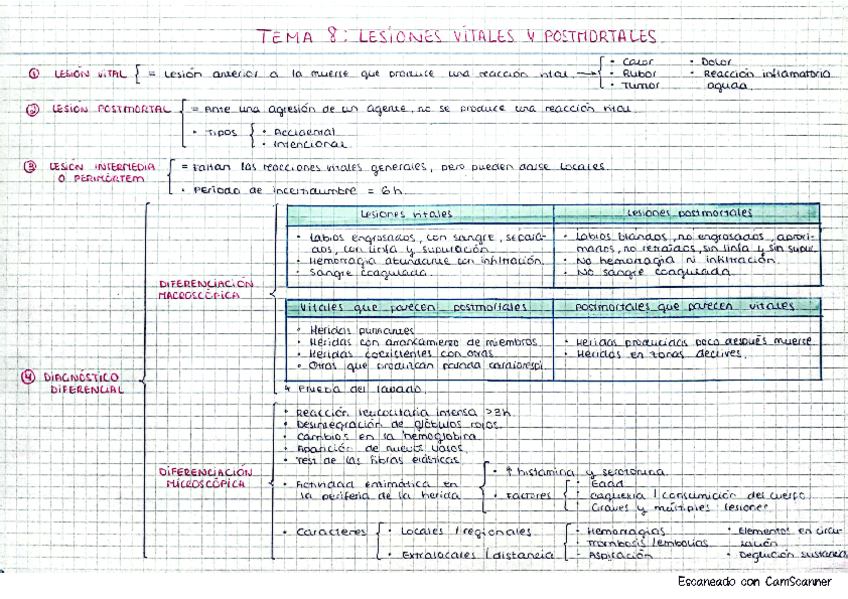 TEMA 8: LESIONES VITALES Y POSTMORTALES
① LESIÓN VITAL = Lesión anterior a la muerte que produce una reacción vital → • Calor • Dolor
• Rubor • Reacción inflamatoria
• Tumor aguda.
② LESIÓN POSTMORTAL = Ante una agresión de un agente, no se produce una reacción vital
• Tipos • Accidental
• Intencional
③ LESIÓN INTERMEDIA = Faltan las reacciones vitales generales, pero pueden darse locales.
O PERIMORTEM • Periodo de incertidumbre = 6h.
Lesiones vitales Lesiones postmortales
• Labios engrosados, con sangre, separa- • Labios blandos, no engrosados, aproxi-
dos, con linfa y supuración. mados, no retraídos, sin linfa y sin supu.
• Hemorragia abundante con infiltración. • No hemorragia ni infiltración.
• Sangre coagulada. • No sangre coagulada
DIFERENCIACIÓN
MACROSCÓPICA
Vitales que parecen postmortales Postmortales que parecen vitales
• Heridas punzantes
• Heridas con arrancamiento de miembros. • Heridas producidas poco después muerte
• Heridas coexistentes con otras • Heridas en zonas declives.
• Otras que produzcan parada cardiorespi.
④ DIAGNÓSTICO
DIFERENCIAL
Prueba del lavado.
• Reacción leucocitaria intensa >8h.
• Desintegración de glóbulos rojos.
• Cambios en la hemoglobina.
• Aparición de nuevos vasos.
• Test de las fibras elásticas
DIFERENCIACIÓN
MICROSCÓPICA
• Actividad enzimática en • ↑ histamina y serotonina.
la periferia de la herida • Factores • Edad
• Caquexia / consumición del cuerpo
• Graves y múltiples lesiones
• Caracteres • Locales / regionales • Hemorragias • Elementos en circu-
• Trombosis / embolias lación
• Extralocales / distancia • Aspiración • Deglución sustancias
Escaneado con CamScanner